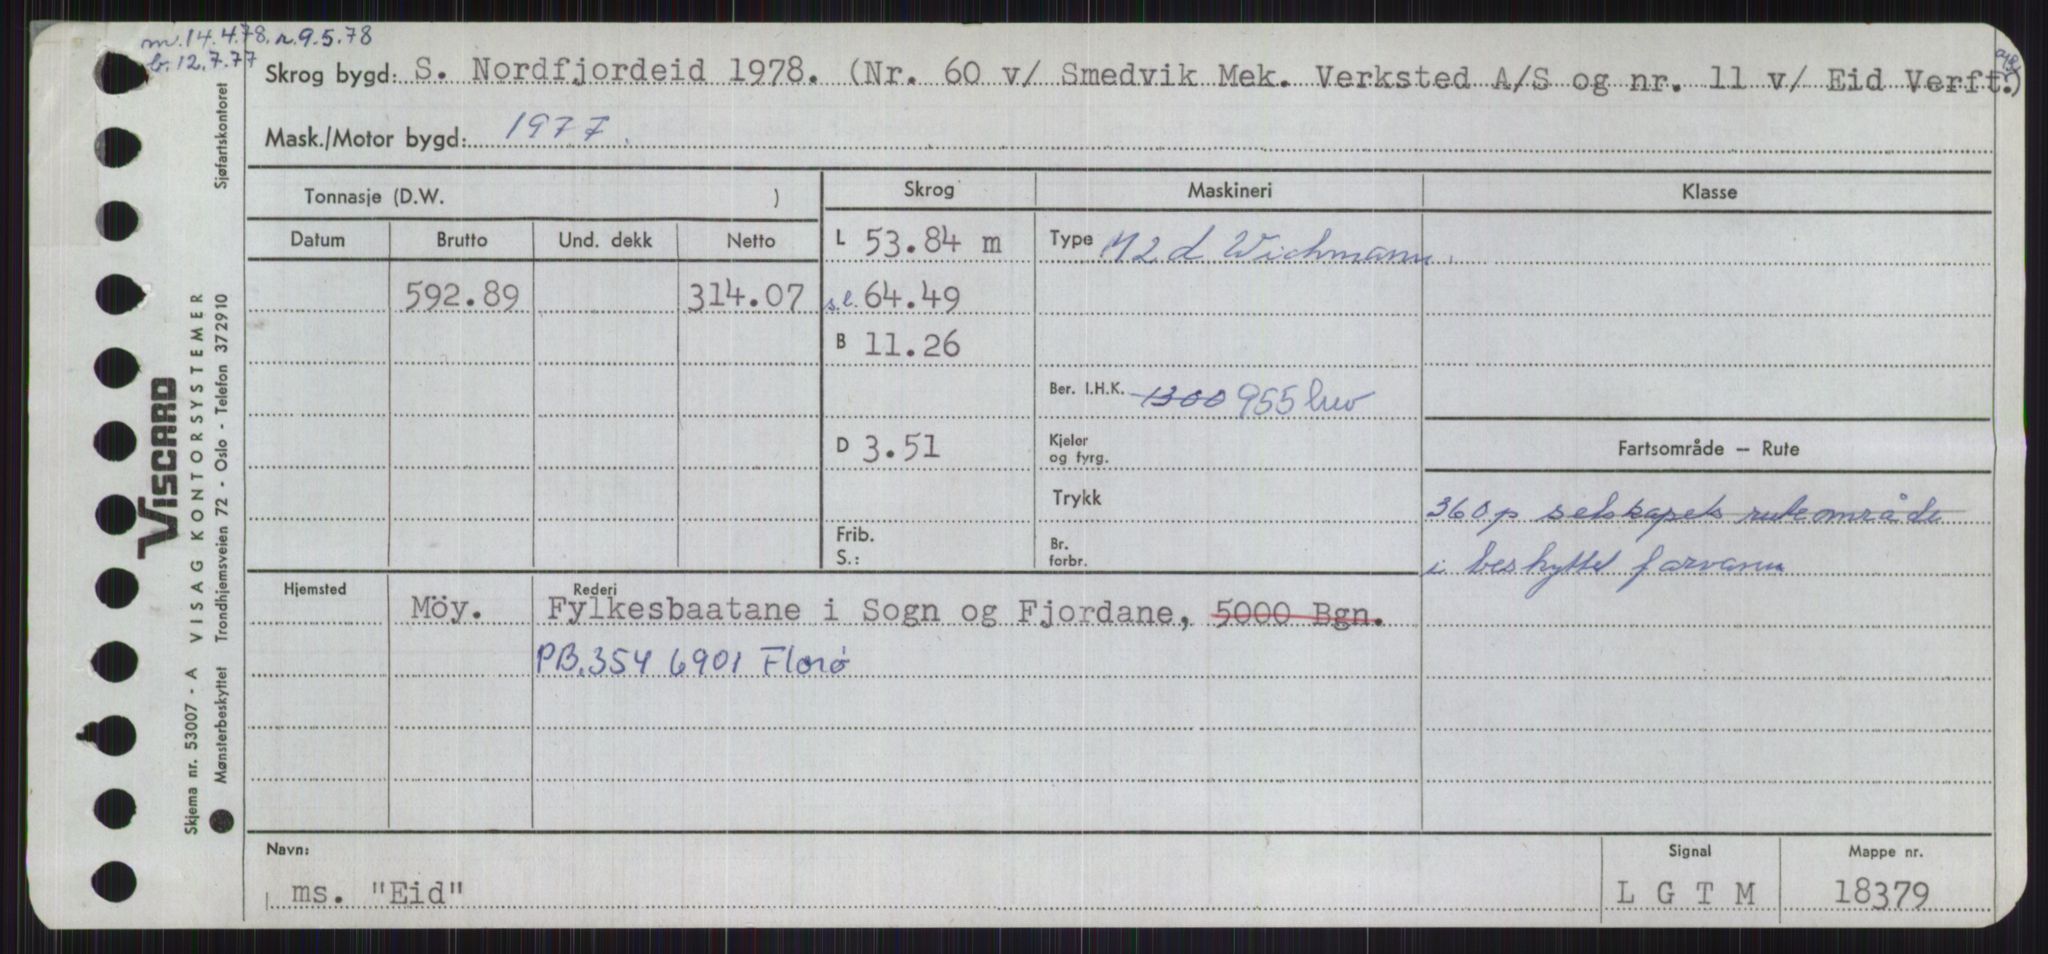 m. 14.4.78. r. 9.5.78
b. 12.7.77
Skrog bygd: S. Nordfjordeid 1978. (Nr. 60 v/ Smedvik Mek. Verksted A/S og nr. 11 v/ Eid Verft.)
Mask./Motor bygd: 1977.
Tonnasje (D.W. )
Skrog
Maskineri
Klasse
Datum
Brutto
Und. dekk
Netto
L 53.84 m
Type M2d Wichmann.
592.89
314.07
s.l. 64.49
B 11.26
Ber. I.H.K. 1300 955 brev
D 3.51
Kjeler
og fyrg.
Fartsområde – Rute
Trykk
360 p selskapets ruteområde
i beskyttet farvann
Frib.
S.:
Br.
forbr.
Hjemsted
Rederi
Möy.
Fylkesbaatane i Sogn og Fjordane, 5000 Bgn.
PB. 354 6901 Florø
Navn:
Signal
Mappe nr.
ms. "Eid"
L G T M
18379
VISCARD
Skjema nr. 53007 - A VISAG KONTORSYSTEMER
Mønsterbeskyttet Trondhjemsveien 72 - Oslo - Telefon 372910 Sjøfartskontoret